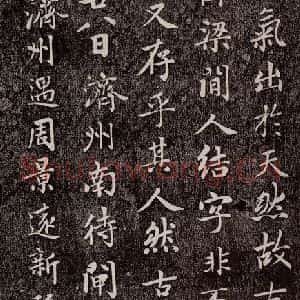 氣出於天然故古
梁間人結字非不
又存乎其人然古
廿八日濟州南待閘
濟州遇周景遠新